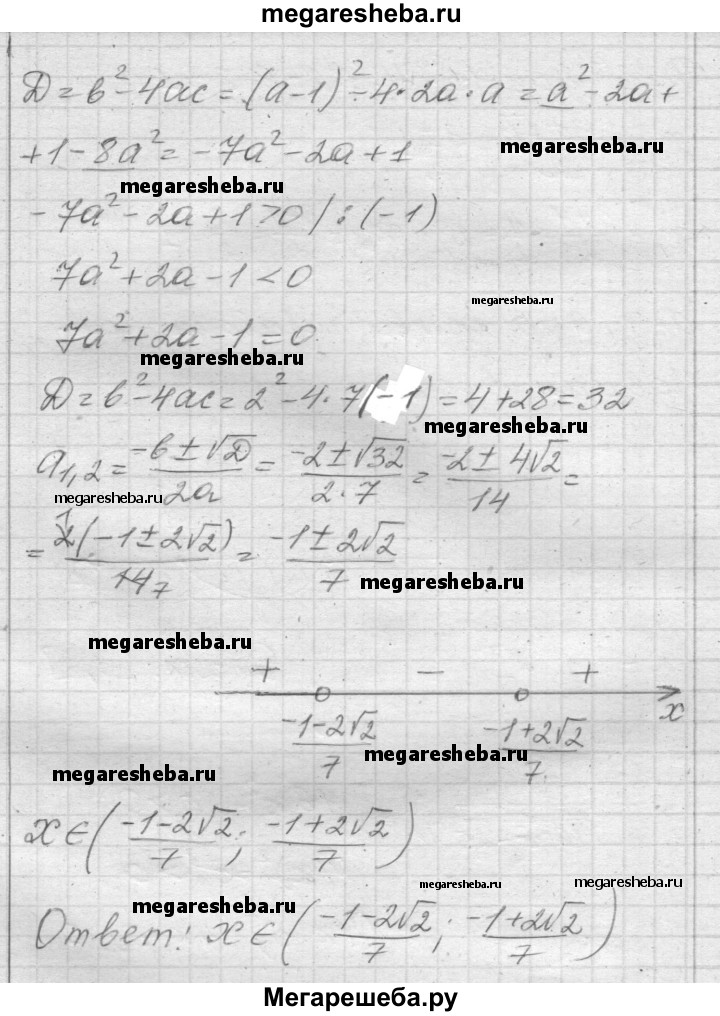 megaresheba.ru
D = b² - 4ac = (a-1)² - 4·2a·a = a² - 2a +
+ 1 - 8a² = -7a² - 2a + 1
megaresheba.ru
megaresheba.ru
-7a² - 2a + 1 > 0 / : (-1)
megaresheba.ru
7a² + 2a - 1 < 0
megaresheba.ru
7a² + 2a - 1 = 0
megaresheba.ru
D = b² - 4ac = 2² - 4·7(-1) = 4 + 28 = 32
megaresheba.ru
a₁,₂ = (-b ± √D)/2a = (-2 ± √32)/(2·7) = (-2 ± 4√2)/14 =
megaresheba.ru
= 2¹(-1 ± 2√2)/14₇ = (-1 ± 2√2)/7
megaresheba.ru
megaresheba.ru
+ - +
x
(-1-2√2)/7 (-1+2√2)/7
megaresheba.ru
megaresheba.ru
x ∈ ((-1-2√2)/7; (-1+2√2)/7)
megaresheba.ru
megaresheba.ru
megaresheba.ru
Ответ: x ∈ ((-1-2√2)/7; (-1+2√2)/7)
Мегарешеба.ру